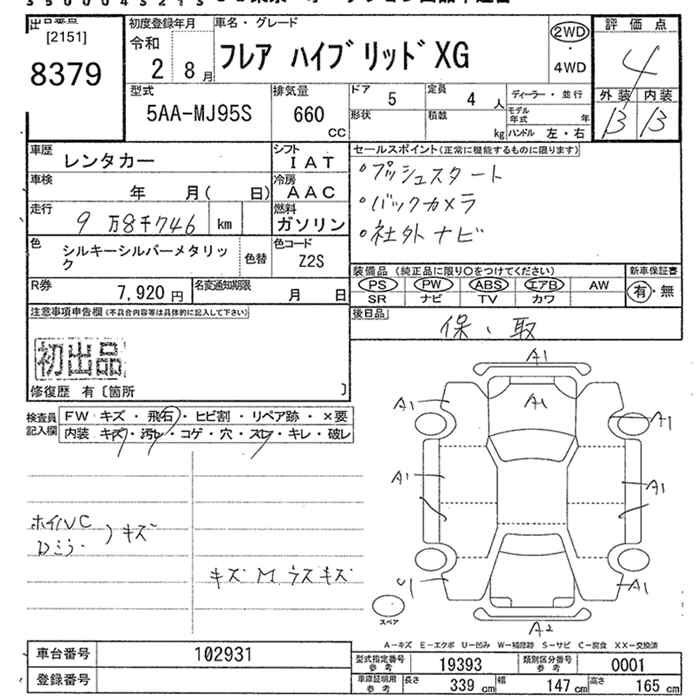 [2151]
8379
初度登録年月
令和
2 8月
車名・グレード
フレア ハイブリッド XG
2WD
4WD
評価点
4
外装 内装
B B
型式
5AA-MJ95S
排気量
660
CC
ドア
5
定員
4 人
形状
積載
kg
ディーラー・並行
モデル年式 年
ハンドル 左・右
車歴
レンタカー
シフト
IAT
車検
年 月( 日)
冷房
AAC
走行
9万8千746 km
燃料
ガソリン
色
シルキーシルバーメタリック
色替
色コード
Z2S
R券
7,920円
名変通知期限
月 日
セールスポイント(正常に機能するものに限ります)
・プッシュスタート
・バックカメラ
・社外ナビ
装備品(純正品に限り○をつけてください)
PS PW ABS エアB AW
SR ナビ TV カワ
新車保証書
有・無
後日品
保、取
注意事項申告欄(不具合内容等は具体的に記入して下さい)
初出品
修復歴 有〔箇所 〕
検査員記入欄
FW キズ・飛石・ヒビ割・リペア跡・×要
内装 キズ・汚レ・コゲ・穴・スレ・キレ・破レ
ホイルC
Dミラー
)キズ
キズM ラスキズ
A1
A1
A1
A1
A1
A1
U1
A1
A2
スペア
A-キズ E-エクボ U-凹み W-補修跡 S-サビ C-腐食 XX-交換済
車台番号
102931
登録番号
型式指定番号参考
19393
類別区分番号参考
0001
車庫証明用参考
長さ 339 cm
幅 147 cm
高さ 165 cm